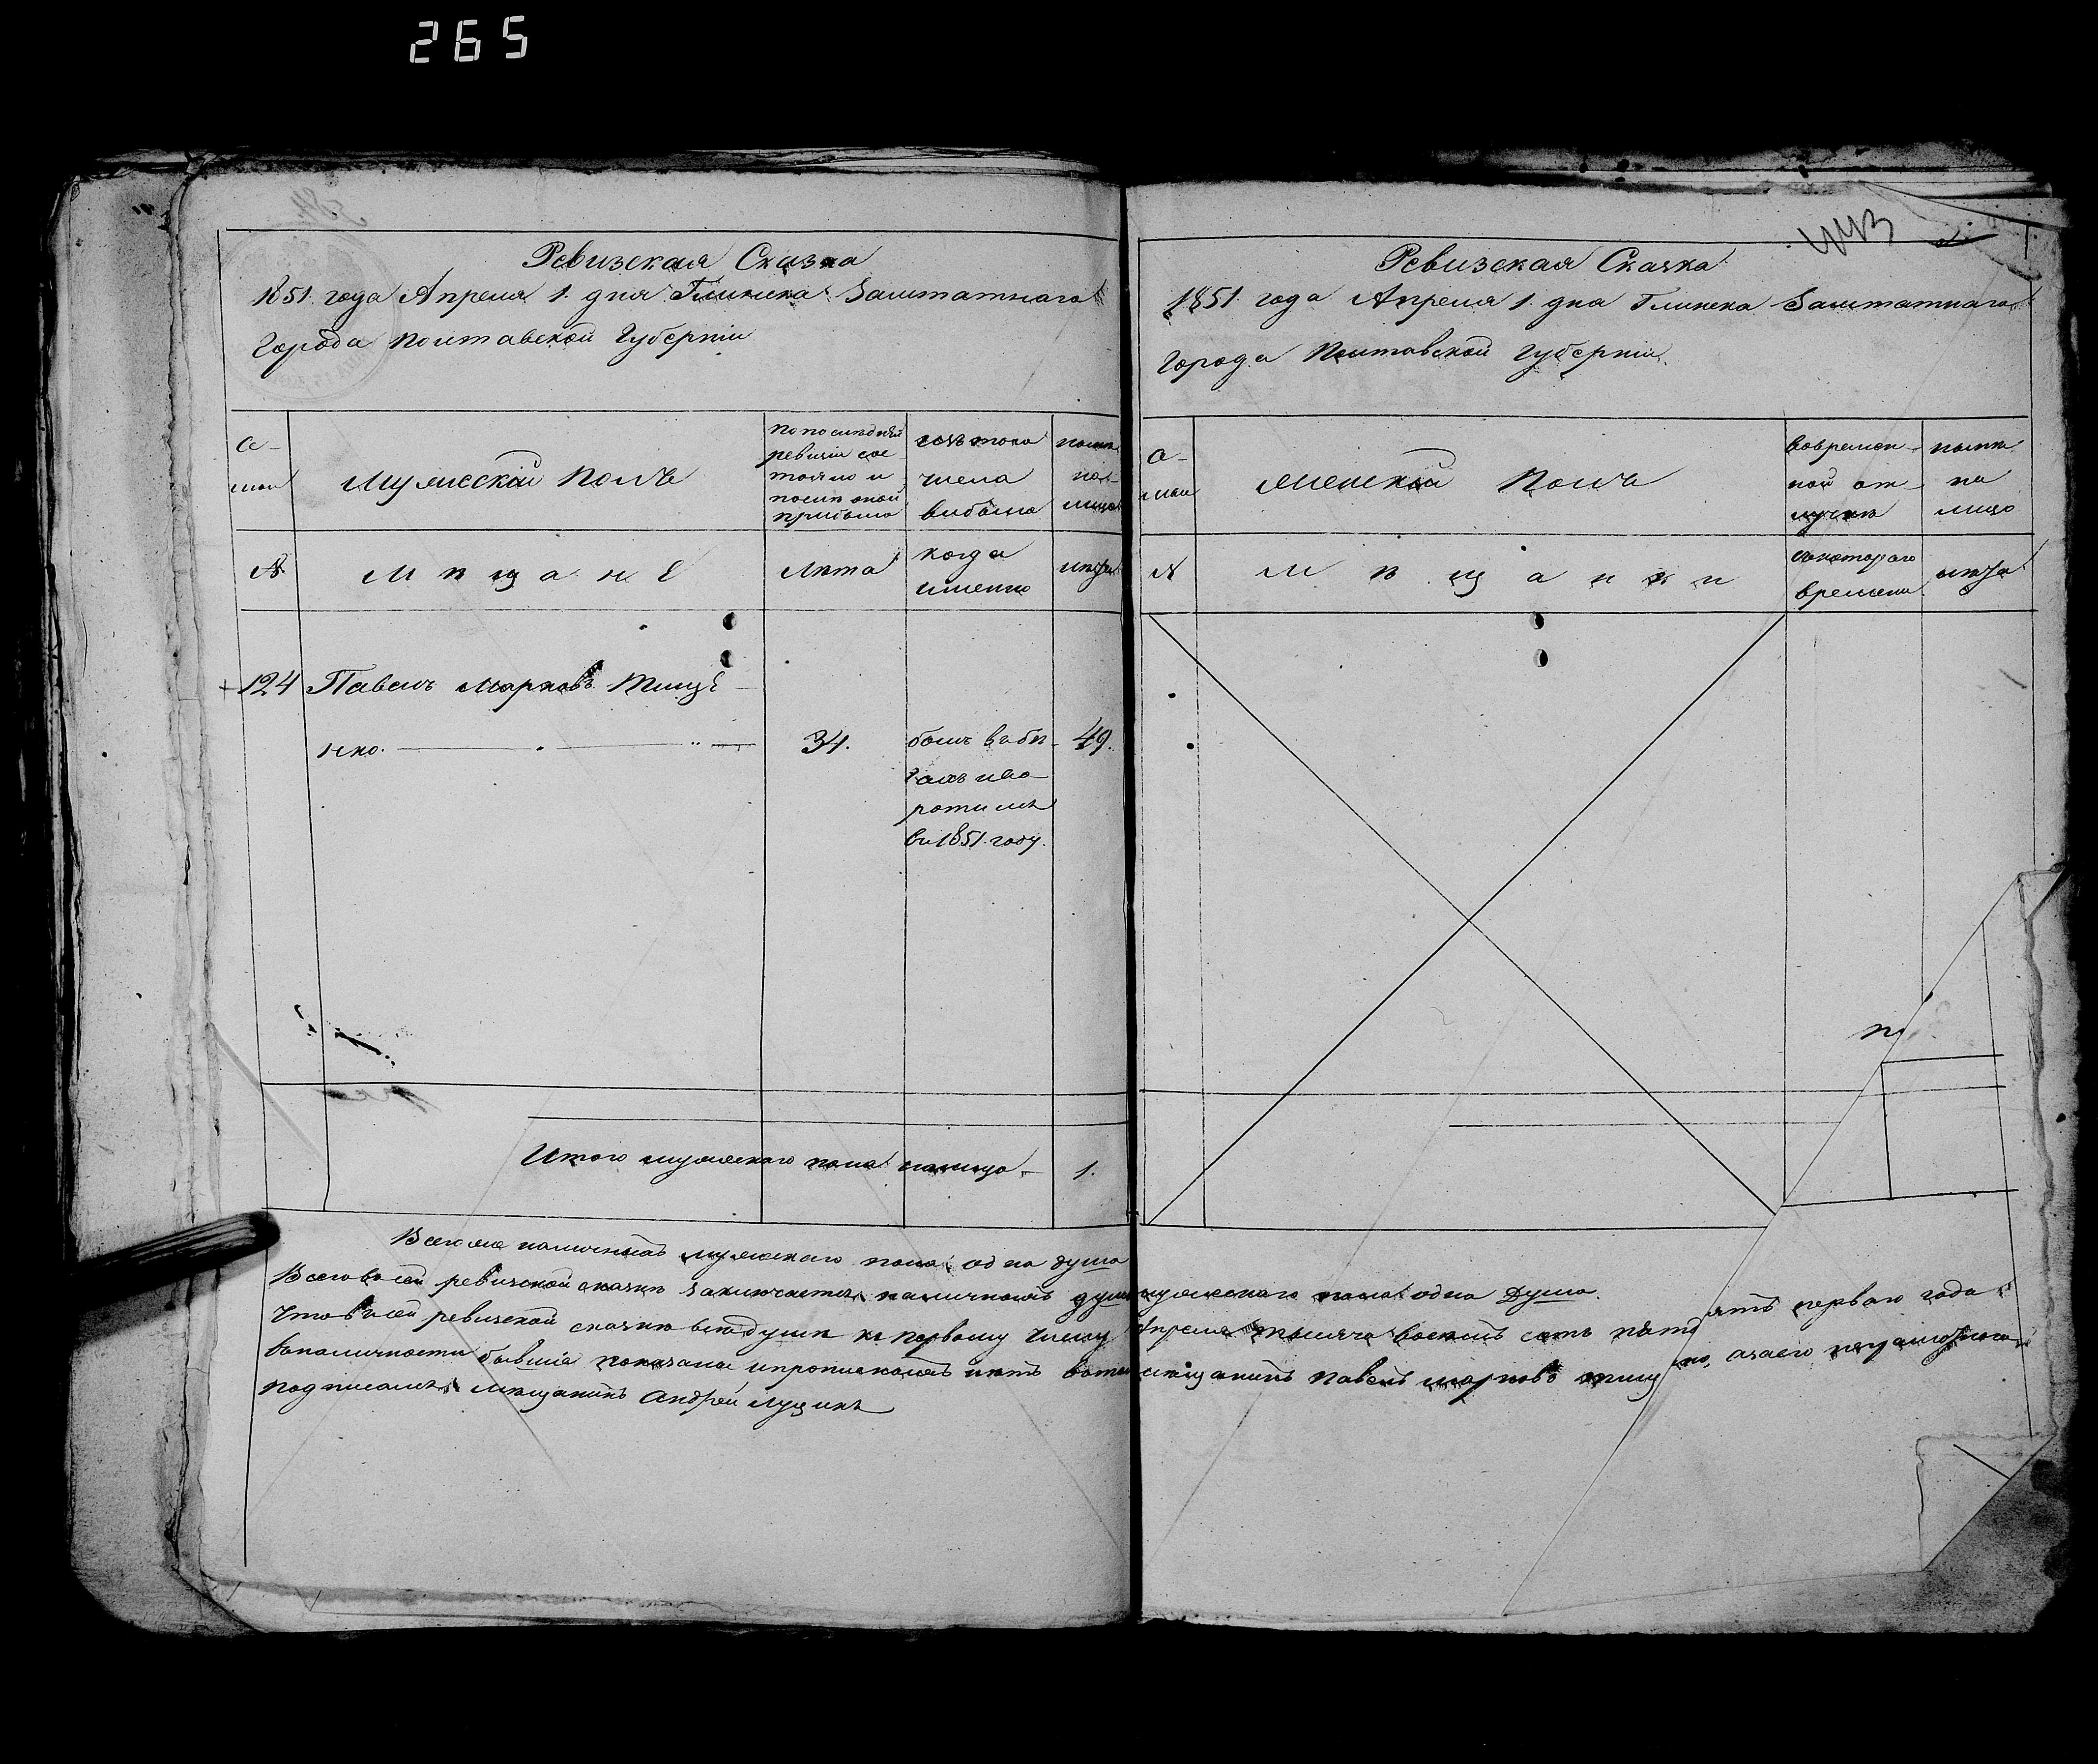 265
Ревизская Сказка
1851 года Апреля 1. дня Глинска Заштатнаго
Города Полтавской Губернiи
Се-
мьи
Мужескiй Полъ
По последней
ревизiи сос
тояло и
после оной
прибыло
изъ того
числа
выбыло
ныне
на-
лицо
№
Мѣщане
Лѣта
когда
именно
лѣта
124
Павелъ Марковъ Тище
нко.
34.
былъ в бѣ-
гахъ и во
ротился
въ 1851 году.
49.
Итого мужескаго пола налицо
1.
443
Ревизская Сказка
1851 года Апреля 1 дня Глинска Заштатнаго
Города Полтавской Губернiи
Се-
мьи
Женскiй Полъ
во времен-
ной от-
лучкѣ
ныне
на
лицо
№
Мѣщанки
с котораго
времени
лѣта
Всего же наличныхъ мужескаго пола одна душа
Всего въ сей ревизской сказке заключается наличныхъ душъ мужескаго пола одна Душа.
Что в сей ревизской сказке все души к первому числу Апреля тысяча восемь сотъ пять ятъ перваго года
в наличности бывшiе показаны и прописныхъ нетъ в томъ мещанинъ Павелъ Марковъ Тище нко, а за его
подписался мещанинъ Андрей